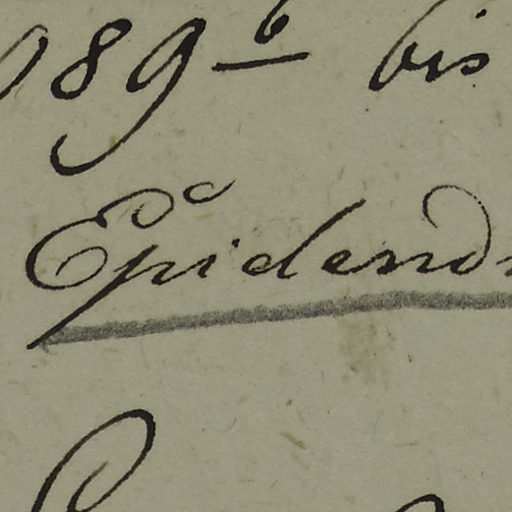 089 b bis
Epidend